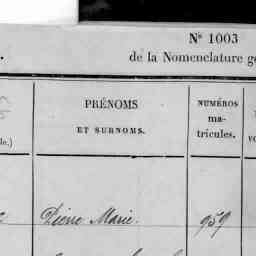 Nº 1003
de la Nomenclature
PRÉNOMS
ET SURNOMS.
NUMÉROS
ma-
tricules.
Pierre Marie.
959